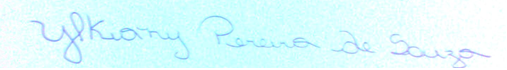 Ylkiany Pereira de Souza